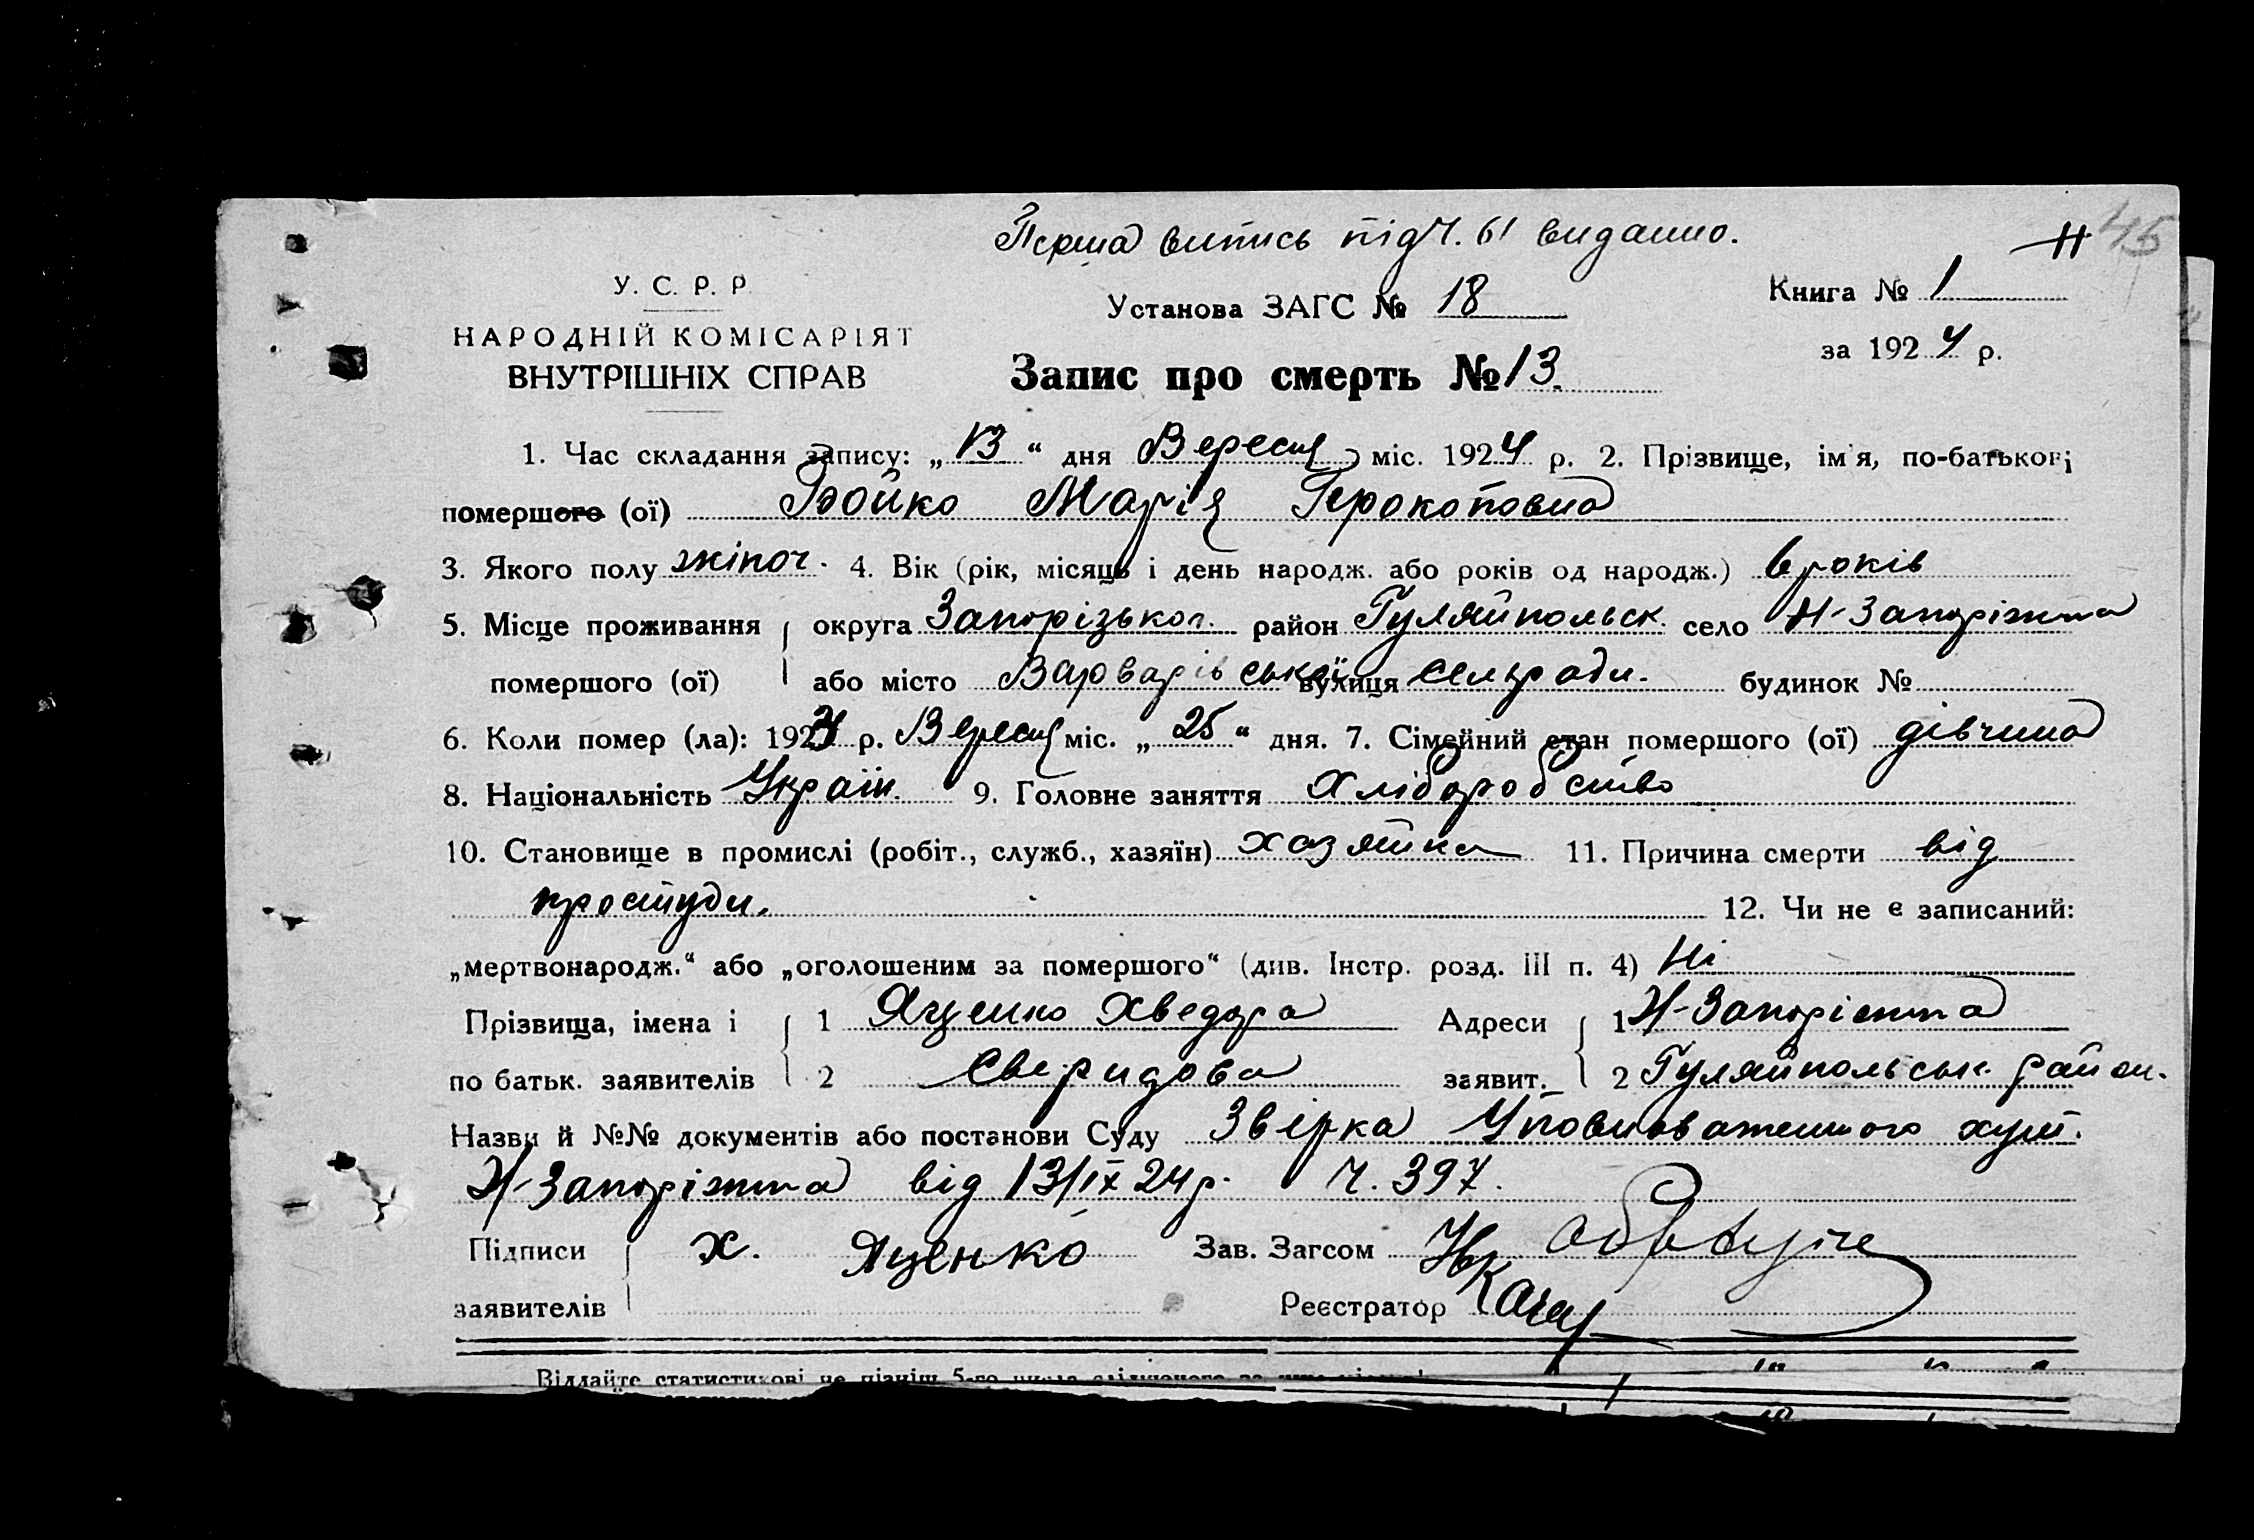 Перша випись під Ч. 61 видано.
Н 45
У. С. Р. Р.
НАРОДНІЙ КОМІСАРІЯТ
ВНУТРІШНІХ СПРАВ
Установа ЗАГС № 18
Книга № 1
за 1924 р.
Запис про смерть № 13.
1. Час складання запису: „13“ дня Вересня міс. 1924 р. 2. Прізвище, ім'я, по-батькові
помершого (ої) Бойко Марія Прокоповна
3. Якого полу жіноч. 4. Вік (рік, місяць і день народж. або років од народж.) 6 років
5. Місце проживання округа Запорізьког. район Гуляйпольск. село Н-Запоріжжа
помершого (ої) або місто Варварівської вулиця сельради. будинок №
6. Коли помер (ла): 192 р. Вересня міс. „25“ дня. 7. Сімейний стан помершого (ої) дівчина
8. Національність Україн. 9. Головне заняття Хліборобство
10. Становище в промислі (робіт., служб., хазяїн) хазяйка 11. Причина смерти від
простуди. 12. Чи не є записаний:
„мертвонародж.“ або „оголошеним за помершого“ (див. Інстр. розд. III п. 4) Ні
Прізвища, імена і 1 Яценко Хведора Адреси 1 Н-Запоріжжа
по батьк. заявителів 2 Свиридова заявит. 2 Гуляйпольськ. район.
Назви й №№ документів або постанови Суду Звірка Уповноваженного хут.
Н-Запоріжжа від 13/IX 24 р. Ч. 397.
Підписи Х. Яценко Зав. Загсом
заявителів Реєстратор
Віддайте статистикові не пізніш 5-го